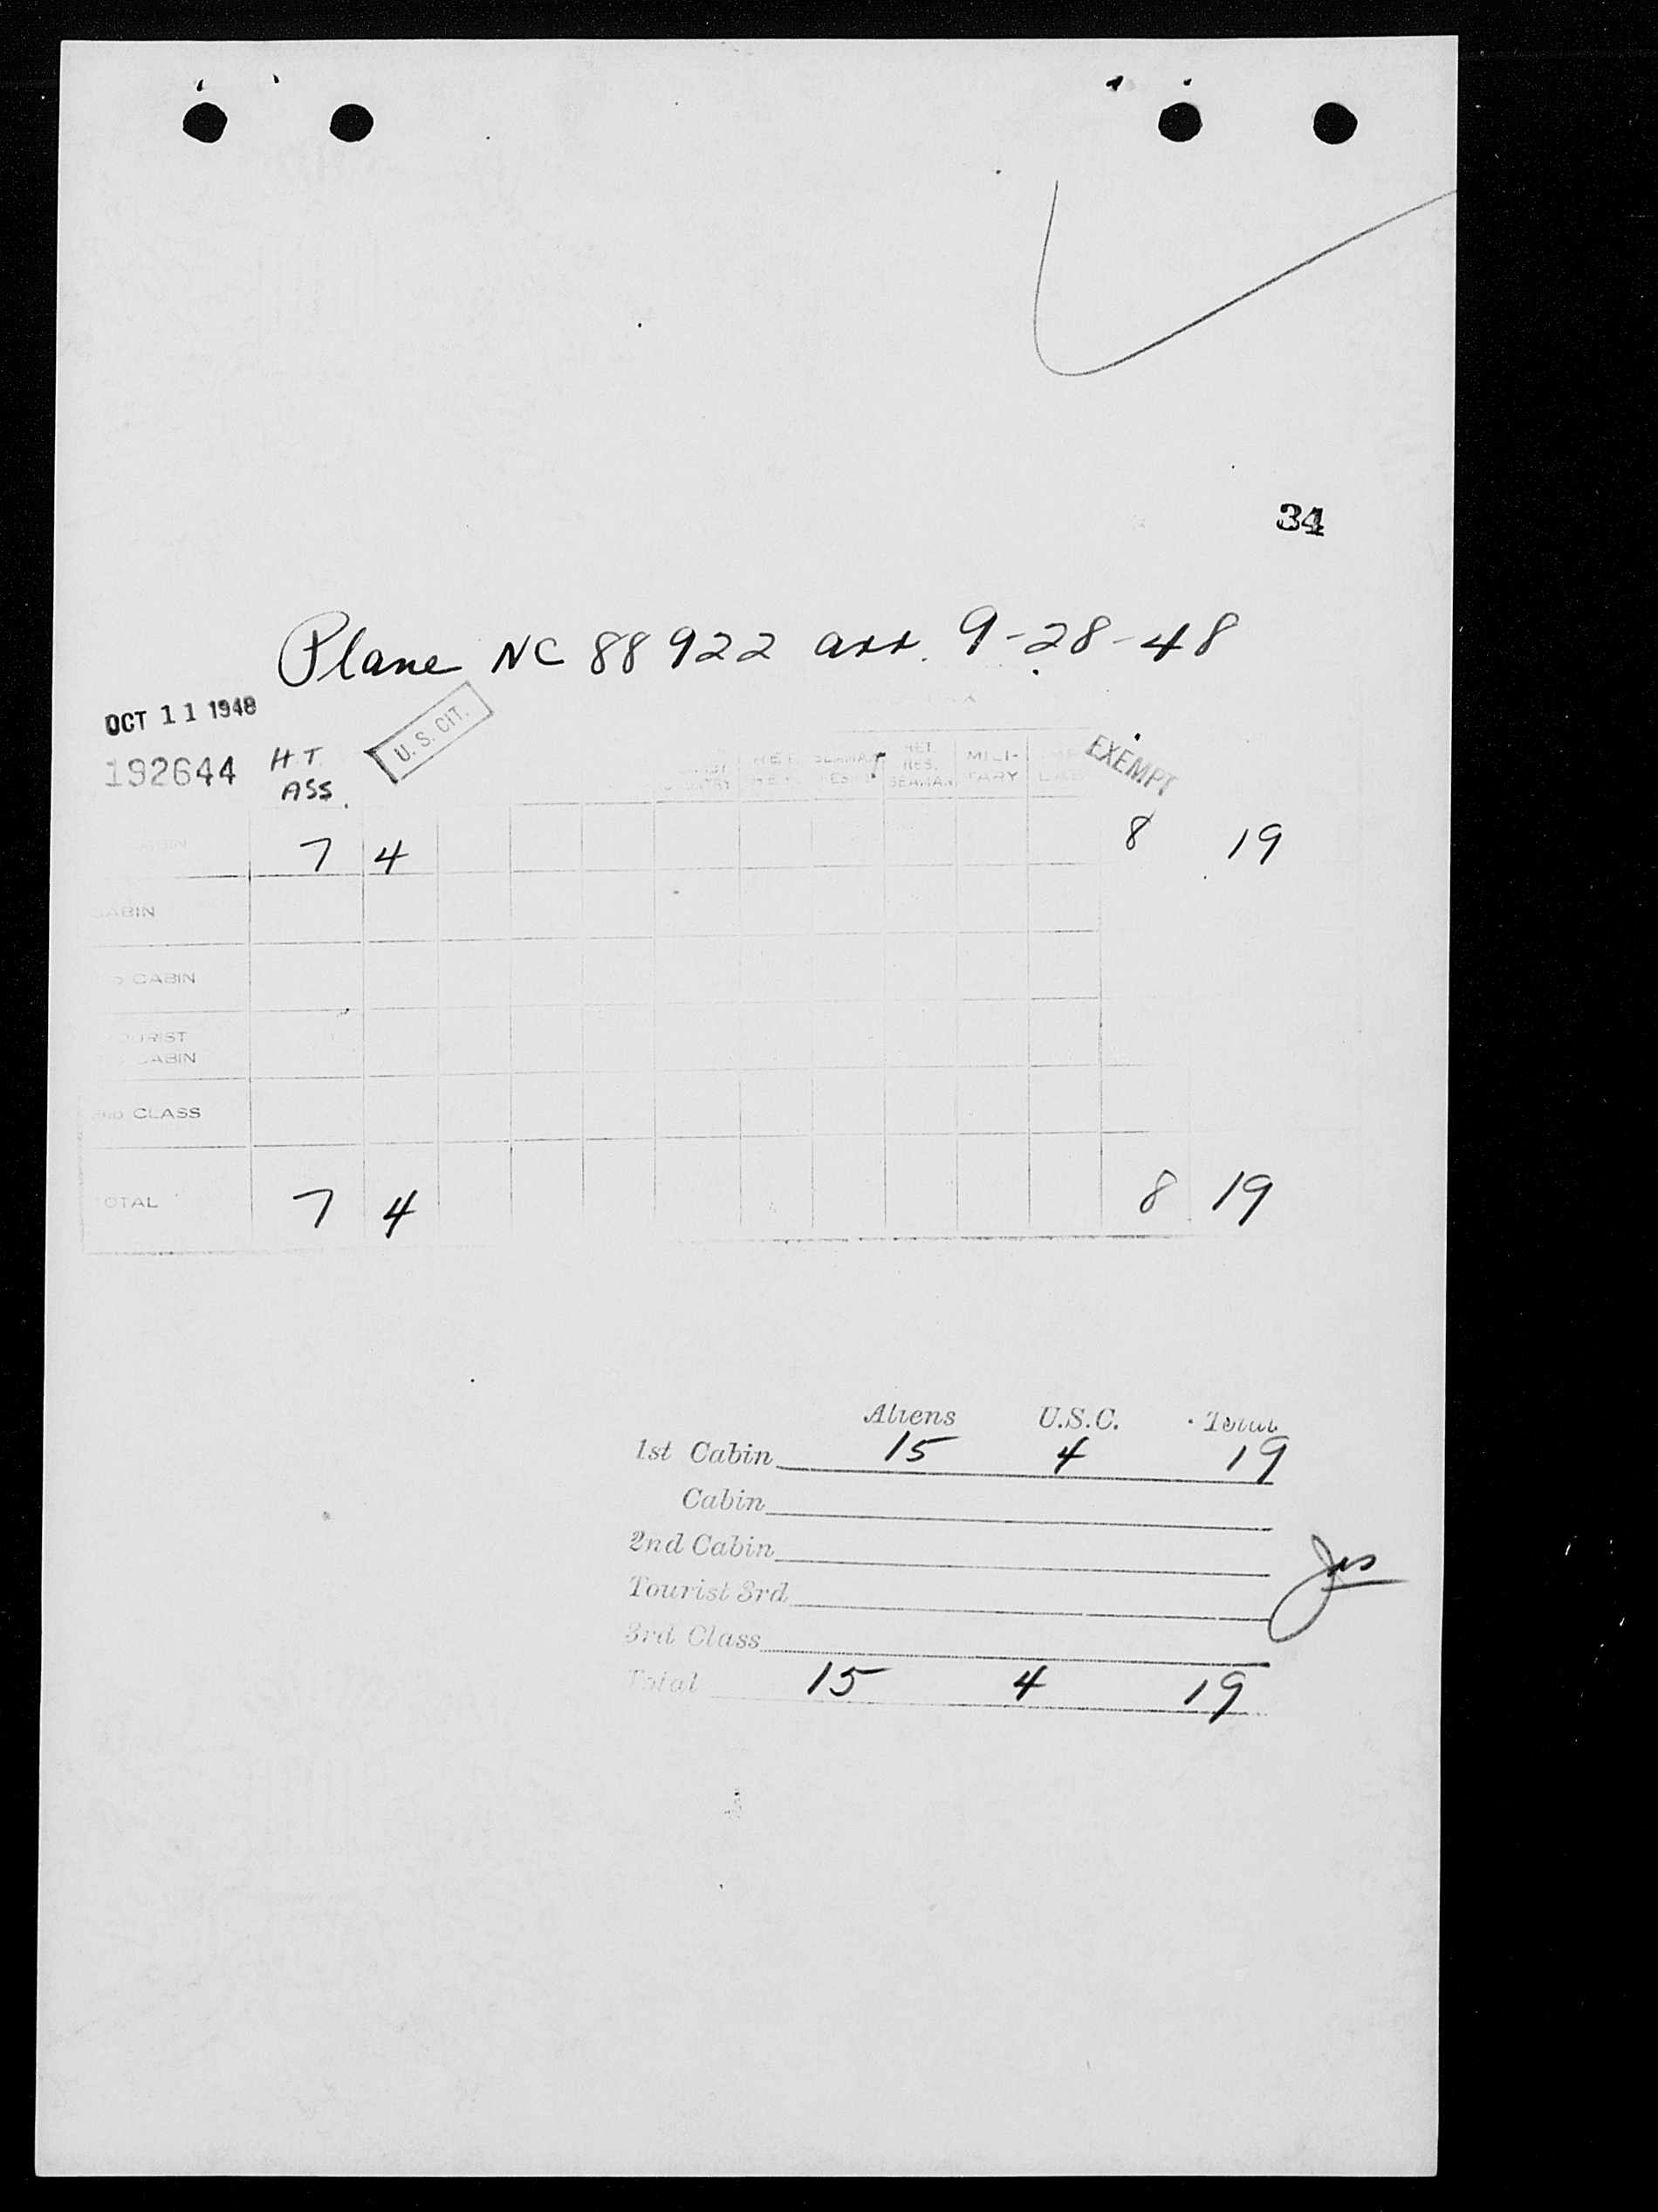 34
Plane NC 88922 arr. 9-28-48
OCT 11 1948
192644 H.T. ASS. U. S. CIT. EXEMPT
RET. RES. SEAMAN MILI-TARY
7 4 8 19
CABIN
CABIN
CABIN
CLASS
TOTAL 7 4 8 19
Aliens U.S.C. Total
1st Cabin 15 4 19
Cabin
2nd Cabin
Tourist 3rd
3rd Class
Total 15 4 19